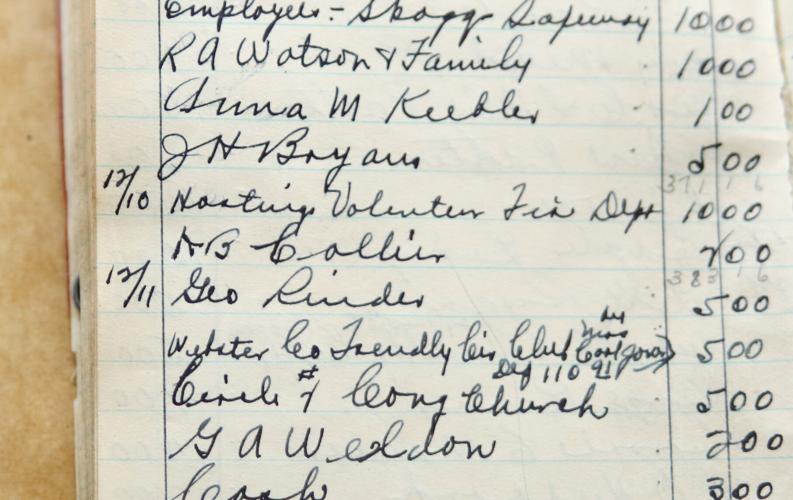 Employees - Skaggs Safeway 1000
R A Watson & Family 1000
Anna M Keebler 100
J H Bryans 500
12/10 Hastings Volenteer Fire Dept 1000
3711 6
H B Collier 200
383 16
12/11 Geo Rinder 500
Webster Co Friendly Cir Club 500
Dep 110 91
Circle #1 Cong Church 500
G A Weldon 200
Cash 300